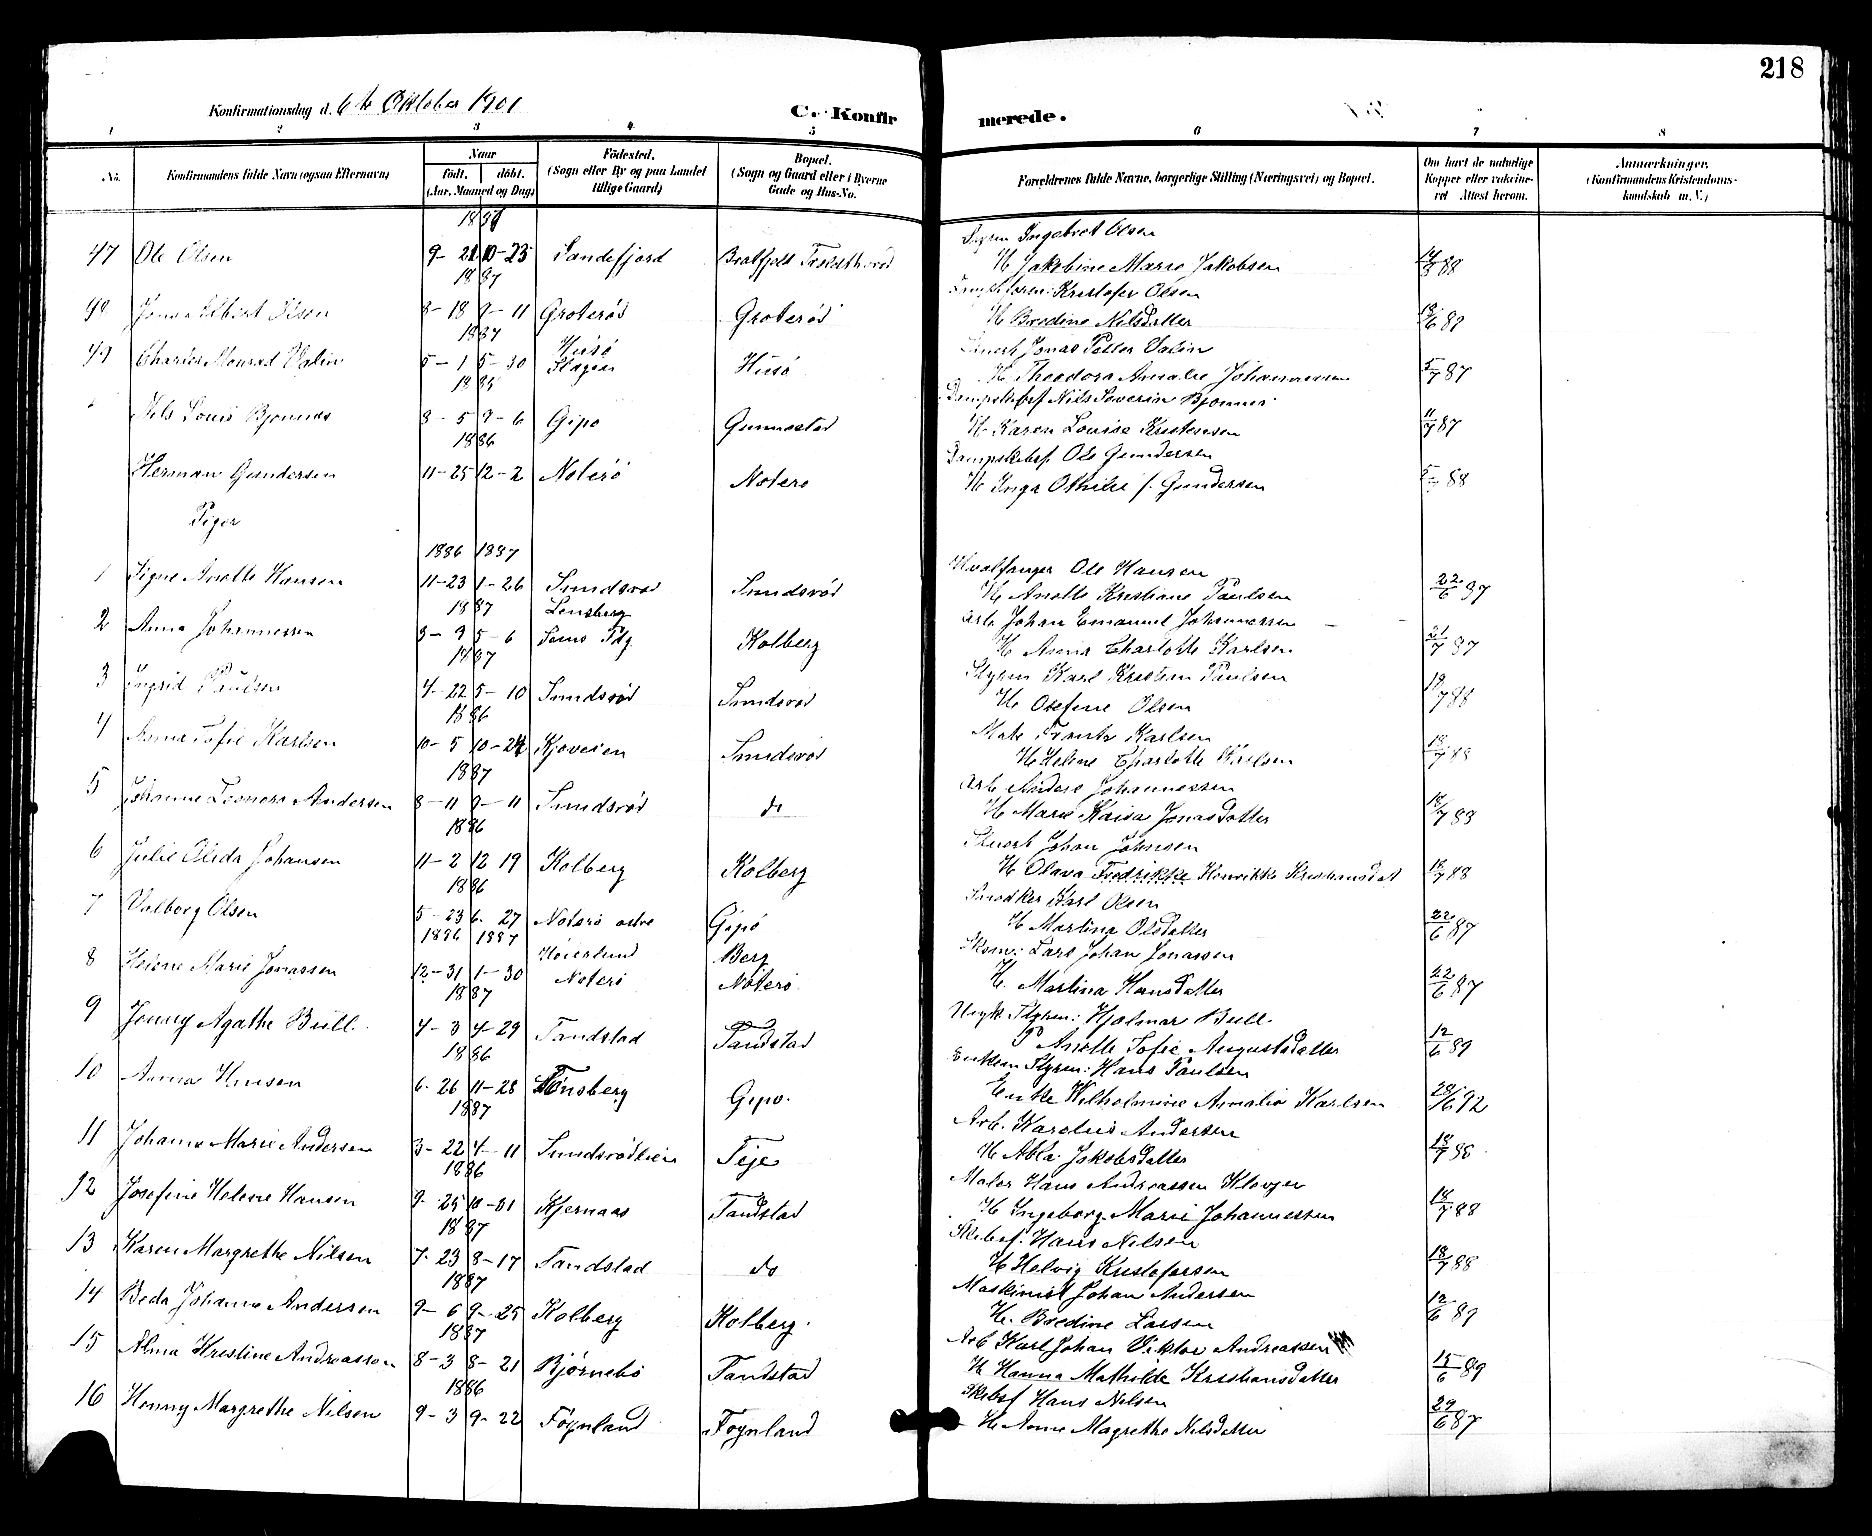 218
Konfirmationsdag d. 6te Oktober 1901
C. Konfir
merede.
1 2 3 4 5 6 7 8
No.
Konfirmandens fulde Navn (ogsaa Efternavn)
Naar
födt. döbt.
(Aar, Maaned og Dag)
Födested.
(Sogn eller By og paa Landet
tillige Gaard)
Bopæl.
(Sogn og Gaard eller i Byerne
Gade og Hus-No.
Forældrenes fulde Navne, borgerlige Stilling (Næringsvei) og Bopæl.
Om havt de naturlige
Kopper eller vaksine-
ret Attest herom.
Anmærkninger.
(Konfirmandens Kristendoms-
kundskab m. V.)
Ingebret Olsen
47 Ole Olsen 9- 21 10-23 Sandefjord H Jakobine Marie Jakobsen 88
1887
Kristofer Olsen
8-18 9-11 Groterød Groterød H Bredine Nilsdatter
1887 Husö
Jonas Petter Valin
Charles Monrad Valin 5-1 5-30 Husö H Theodora Amalie Johannessen 5/7 87
Dampskibsf Nils Severin Bjønnes
Nils Louis Bjønnes 8-5 9-6 Gipø Gunnestad H Karen Louise Kristensen 11/7 87
1886
Dampskibsf. Ole Gundersen
Herman Gundersen 11-25 12-2 Noterö Noterö H Inga Othilie f. Gundersen 88
Piger
1886 1887
Hvalfanger Ole Hansen
1 Signe Anette Hansen 11-23 1-26 Smidsrød Smidsrød H Anette Kristiane Paulsen 22/6 87
1887 Tønsberg
Arb. Johan Emanuel Johannessen
2 Anna Johannessen 3-9 5-6 Kolberg H Anna Charlotte Karlsen 21/7 87
1887
Styrm Karl Kristian Paulsen
3 Ingrid Paulsen 4-22 5-10 Smidsrød Smidsrød H Osefine Olsen 18/7 88
1886
Frantz Karlsen
4 Anna Sofie Karlsen 10-5 10-24 Kjøveien Smidsrød H Helene Charlotte Karlsen 18/7 88
1887
Arb Anders Johannessen
5 Johanne Leonora Andersen 8-11 9-11 Smidsrød do H Marie Kaisa Jonasdatter 18/7 88
1886
Stuert Johan Johnsen
6 Julie Alida Johansen 11-2 12 19 Kolberg Kolberg H Olava Fredrikke Henrikke Kristiansdat 18/7 88
1886
Snedker Karl Olsen
7 Valborg Olsen 5-23 6-27 Noterö Gipö H Martina Olsdatter 22/6 87
1886 1887 Berg
Lars Johan Jonassen
8 Helene Marie Jonassen 12-31 1-30 Noterö Nöterö H. Martina Hansdatter 22/6 87
1887
Styrm: Hjalmar Bull
9 Jenny Agathe Bull 4-3 4-29 Tandstad Tandstad P Anette Sofie Augustsdatter 12/6 89
1886
Styrm: Hans Paulsen
10 Anna Hansen 6-26 11-28 Tønsberg Gipø. Enke Wilhelmine Amalie Karlsen 28/6 92
1887
Arb. Karolius Andersen
11 Johanne Marie Andersen 3-22 4-11 Smidsrødveien Teje H Abla Jakobsdatter 18/7 88
1886
Maler Hans Andreassen Kløvjer
12 Josefine Helene Hansen 9-25 10-31 Kjernaas Tandstad H Ingeborg Marie Johannessen 18/7 88
1887
Skibsf. Hans Nilsen
13 Karen Margrethe Nilsen 7-23 8-17 Tandstad do H Helvig Kristofersen 18/7 88
1887
Maskinist Johan Andersen
14 Beda Johanne Andersen 9-6 9-25 Kolberg Kolberg. H. Bredine Larsen 12/6 89
1887
Arb Karl Johan Viktor Andreassen
15 Alma Kristine Andreassen 8-3 8-21 Bjørnebö Tandstad H Hanna Mathilde Kristiansdatter 15/6 89
1886
Skibsf Hans Nilsen
16 Henny Margrethe Nilsen 9-3 9-22 Føynland Føynland H Anne Magrethe Nilsdatter 29/6 87